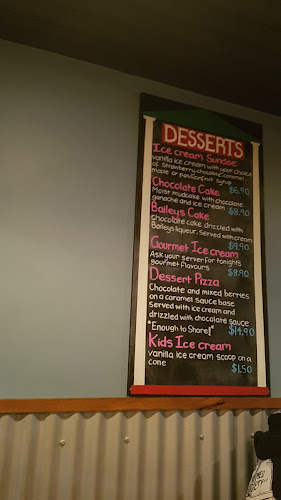 DESSERTS
Ice cream Sundae
vanilla ice cream with your choice
of strawberry, chocolate, caramel,
maple or passionfruit syrup
$6.90
Chocolate Cake
Moist mudcake with chocolate
ganache and ice cream $8.90
Baileys Cake
chocolate cake drizzled with
Baileys liqueur, served with cream
$9.90
Gourmet Ice cream
Ask your server for tonight's
gourmet flavours $8.90
Dessert Pizza
Chocolate and mixed berries
on a caramel sauce base
served with ice cream and
drizzled with chocolate sauce
"Enough to Share!" $14.90
Kids Ice cream
vanilla ice cream scoop on a
cone $1.50